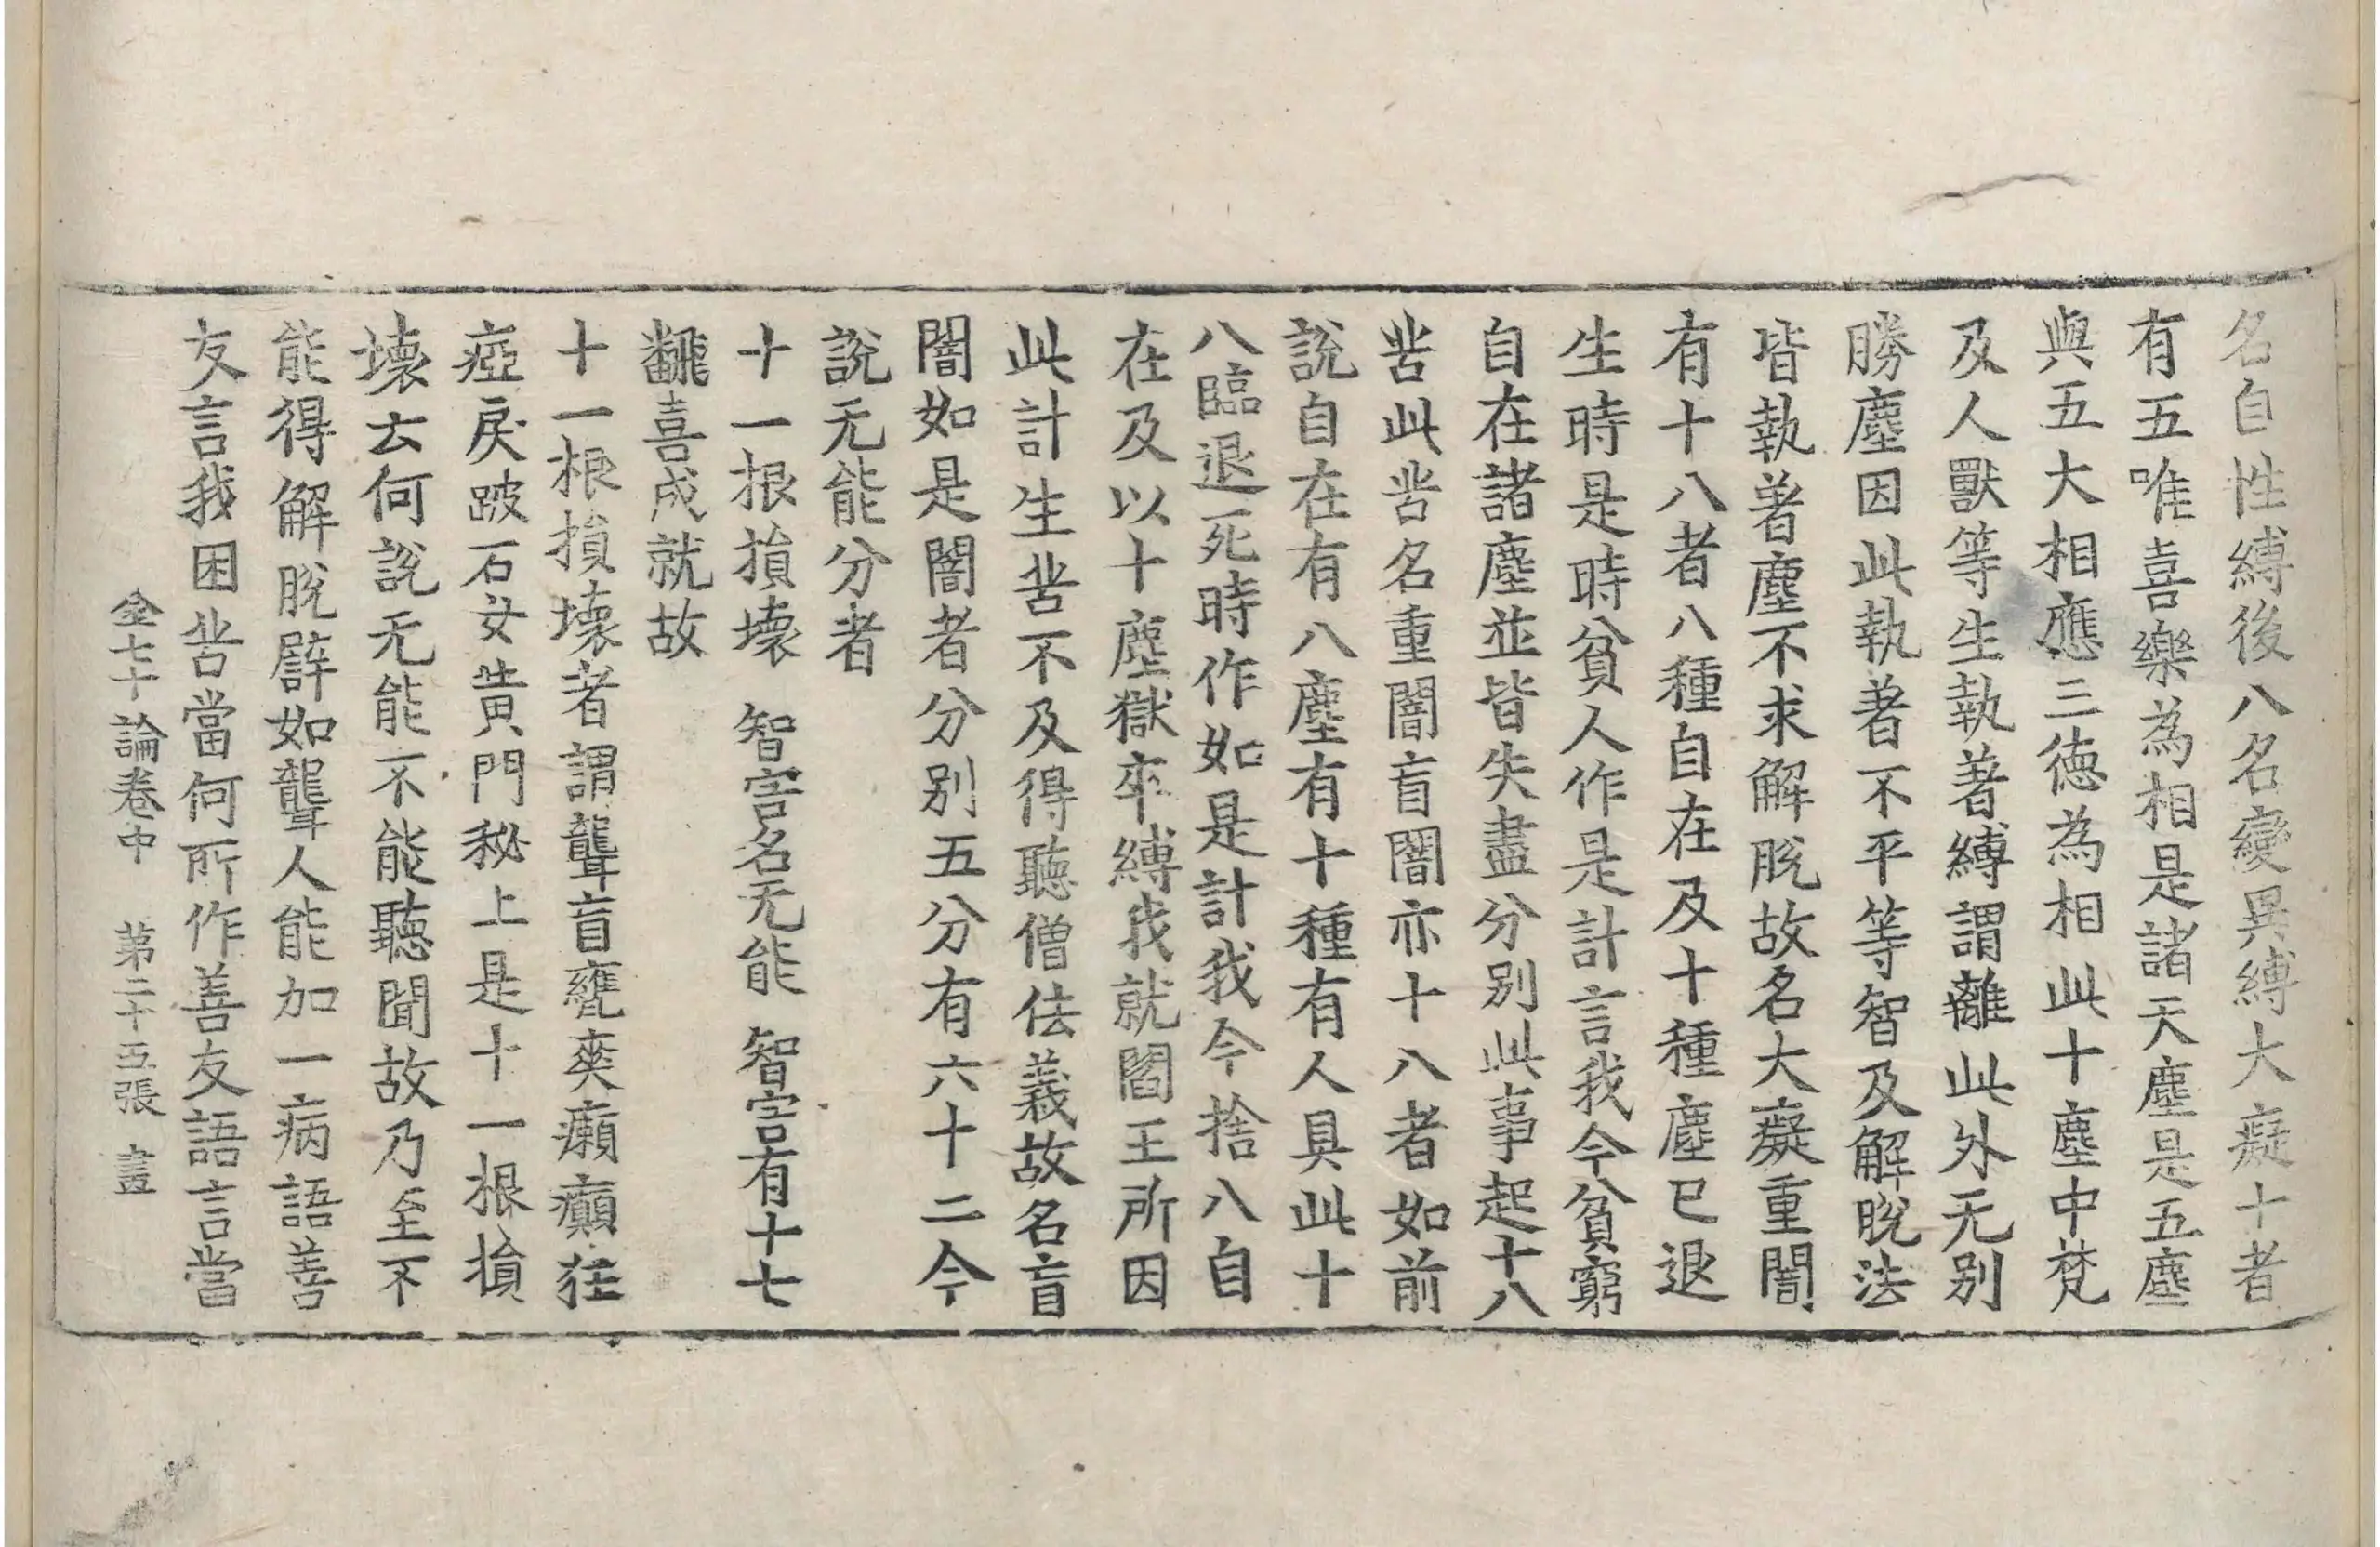 名自性縛後八名變異縛大癡十者
有五唯喜樂為相是諸天塵是五塵
與五大相應三德為相此十塵中梵
及人獸等生執著縛謂離此外无別
勝塵因此執著不平等智及解脫法
皆執著塵不求解脫故名大癡重闇
有十八者八種自在及十種塵已退
生時是時貧人作是計言我今貧窮
自在諸塵並皆失盡分別此事起十八
苦此苦名重闇盲闇亦十八者如前
說自在有八塵有十種有人具此十
八臨退死時作如是計我今捨八自
在及以十塵獄卒縛我就閻王所因
此計生苦不及得聽僧佉義故名盲
闇如是闇者分別五分有六十二今
說无能分者
十一根損壞 智害名无能 智害有十七
翻喜成就故
十一根損壞者謂聾盲齆瘂癩癲狂
瘂戾跛石女黃門秘上是十一根損
壞云何說无能不能聽聞故乃至不
能得解脫譬如聾人能加一病語善
友言我困苦當何所作善友語言當
金七十論卷中 第二十五張 畫